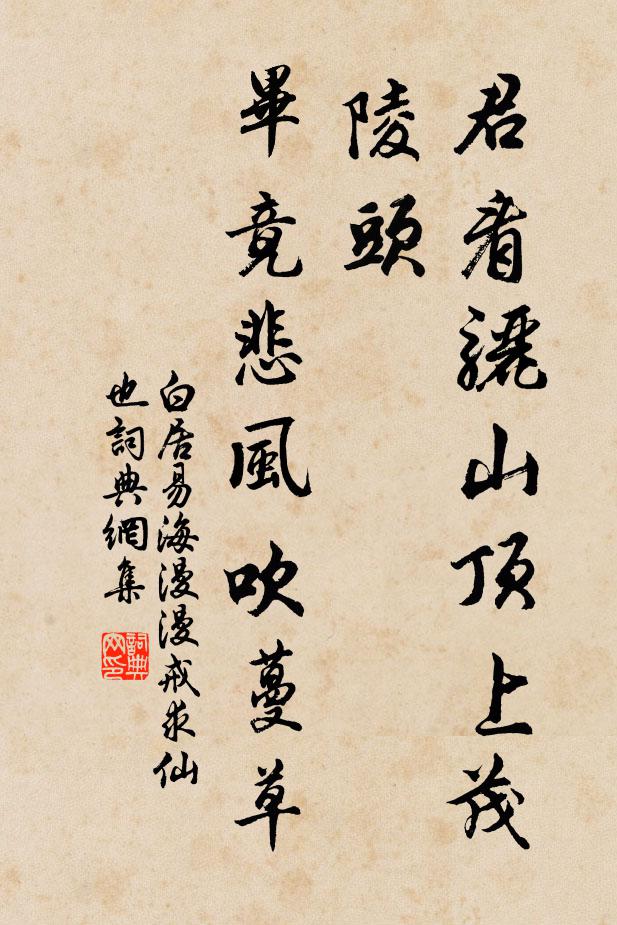 君看驪山頂上茂
陵頭
畢竟悲風吹蔓草
白居易海漫漫戒求仙
也詞典網集
詞典
网印